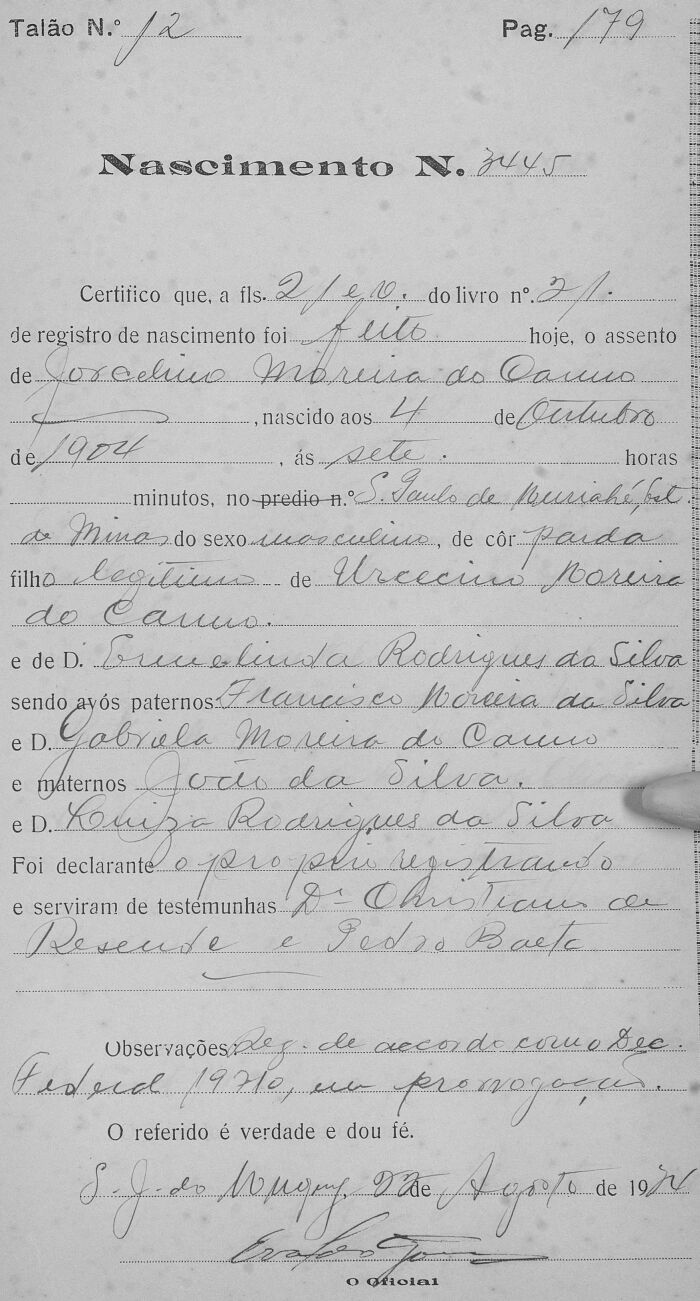 Talão N.º 12 Pag. 179
Nascimento N. 3445
Certifico que, a fls. 21 e v. do livro nº. 21.
de registro de nascimento foi feito hoje, o assento
de Jorcelino Moreira do Carmo
, nascido aos 4 de Outubro
de 1904, ás sete. horas
minutos, no predio n.º S. Paulo de Muriahé, Est.
de Minas do sexo masculino, de côr parda
filho legitimo de Urcecino Moreira
do Carmo.
e de D. Ermelinda Rodrigues da Silva
sendo avós paternos Francisco Moreira da Silva
e D. Gabriela Moreira do Carmo
e maternos João da Silva.
e D. Luiza Rodrigues da Silva
Foi declarante o proprio registrando
e serviram de testemunhas Dr. Christiano de
Resende e Pedro Baeta
Observações: Reg. de accordo com o Dec.
Federal 19710, em prorrogação.
O referido é verdade e dou fé.
S. J. do de Agosto de 19
O Oficial